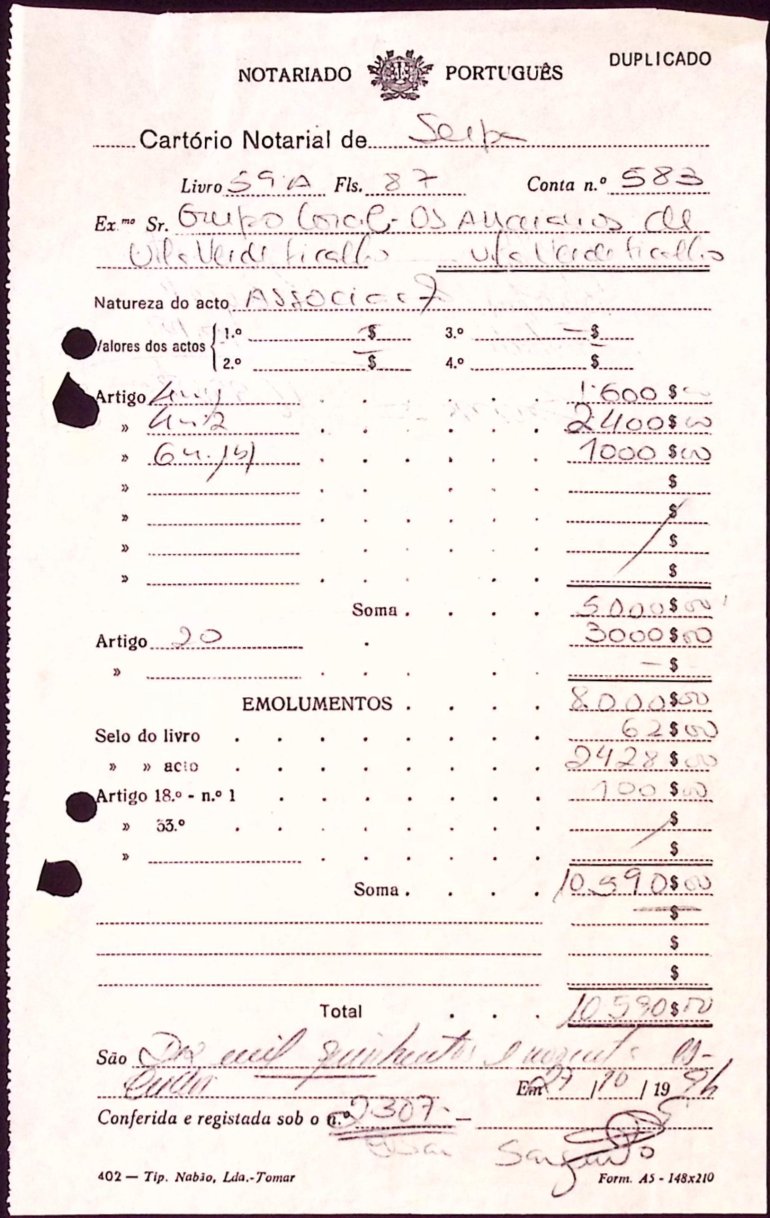 DUPLICADO
NOTARIADO PORTUGUÊS
Cartório Notarial de Serpa
Livro 59 A Fls. 87 Conta n.º 583
Ex.mo Sr. Grupo Coral - Os Anciãos de
Vila Verde Ficalho Vila Verde Ficalho
Natureza do acto
Valores dos actos 1.º $ 3.º $
2.º $ 4.º $
Artigo 1.600 $00
» 2400 $00
» 1000 $00
» $
» $
» $
» $
Soma . . . . 5.000 $00
Artigo 20 3000 $00
» — $
EMOLUMENTOS . . . . 8.000 $00
Selo do livro 62 $00
» » acto 2428 $00
Artigo 18.º - n.º 1 100 $00
» 33.º $
» $
Soma . . . . 10.590 $00
$
$
$
Total . . . 10.590 $00
São Dez mil quinhentos e noventa es-
cudos Em 27 / 10 / 19 94
Conferida e registada sob o n.º 2307 —
Sargento
402 — Tip. Nabão, Lda.-Tomar Form. A5 - 148x210